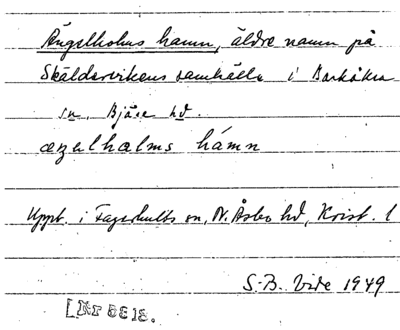 Ängelholms hamn, äldre namn på
Skäldervikens samhälle i Barkåkra
sn, Bjäre hd.
æŋəlhålms hámn
Uppt. i Fagerhults sn, N. Åsbo hd, Krist. l
S.-B. Vide 1949
[Nr 5618.